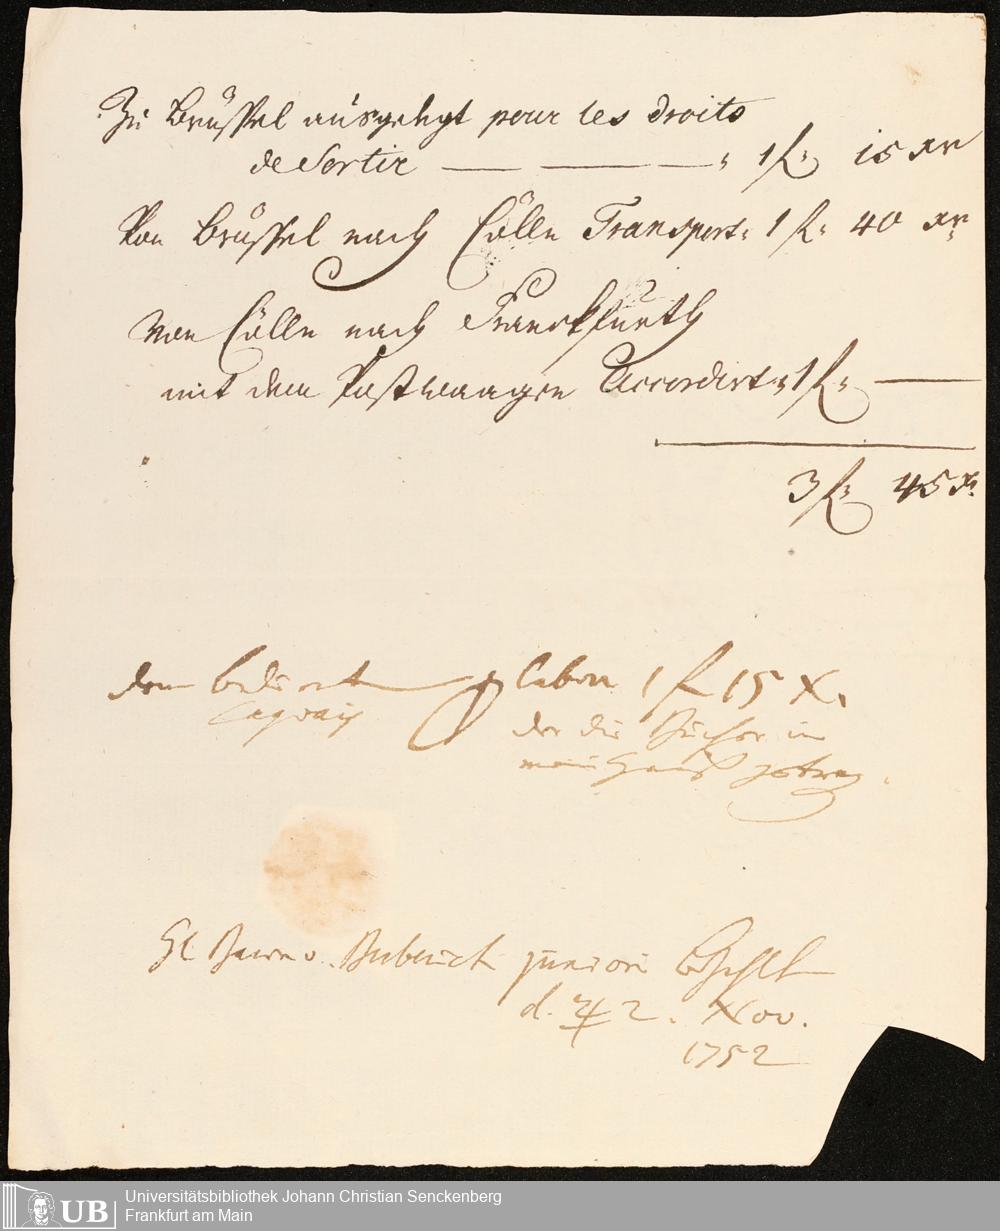 Zu Brüssel ausgelegt pour les droits
de Sortir — — 1 fl. 15 xr
Von Brüssel nach Cölln Transport. 1 fl. 40 xr.
von Cölln nach Franckfurth
mit dem Postwaagen Accordirt. 1 fl. —
3 fl. 45 x.
dem
geben 1 fl 15 X.
der die Bücher in
mein Hauß getrag.
H. Baron v. juniori bezahlt
d. ♃ 2. Nov.
1752
Universitätsbibliothek Johann Christian Senckenberg
UB Frankfurt am Main